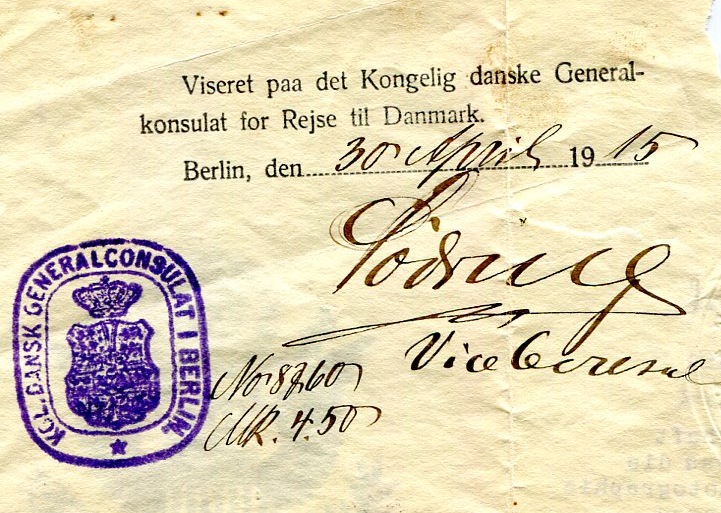 Viseret paa det Kongelig danske General-
konsulat for Rejse til Danmark.
Berlin, den 30 April 1915
Södring
Viceconsul
KGL. DANSK GENERALCONSULAT I BERLIN.
No 8260
MK. 4.50